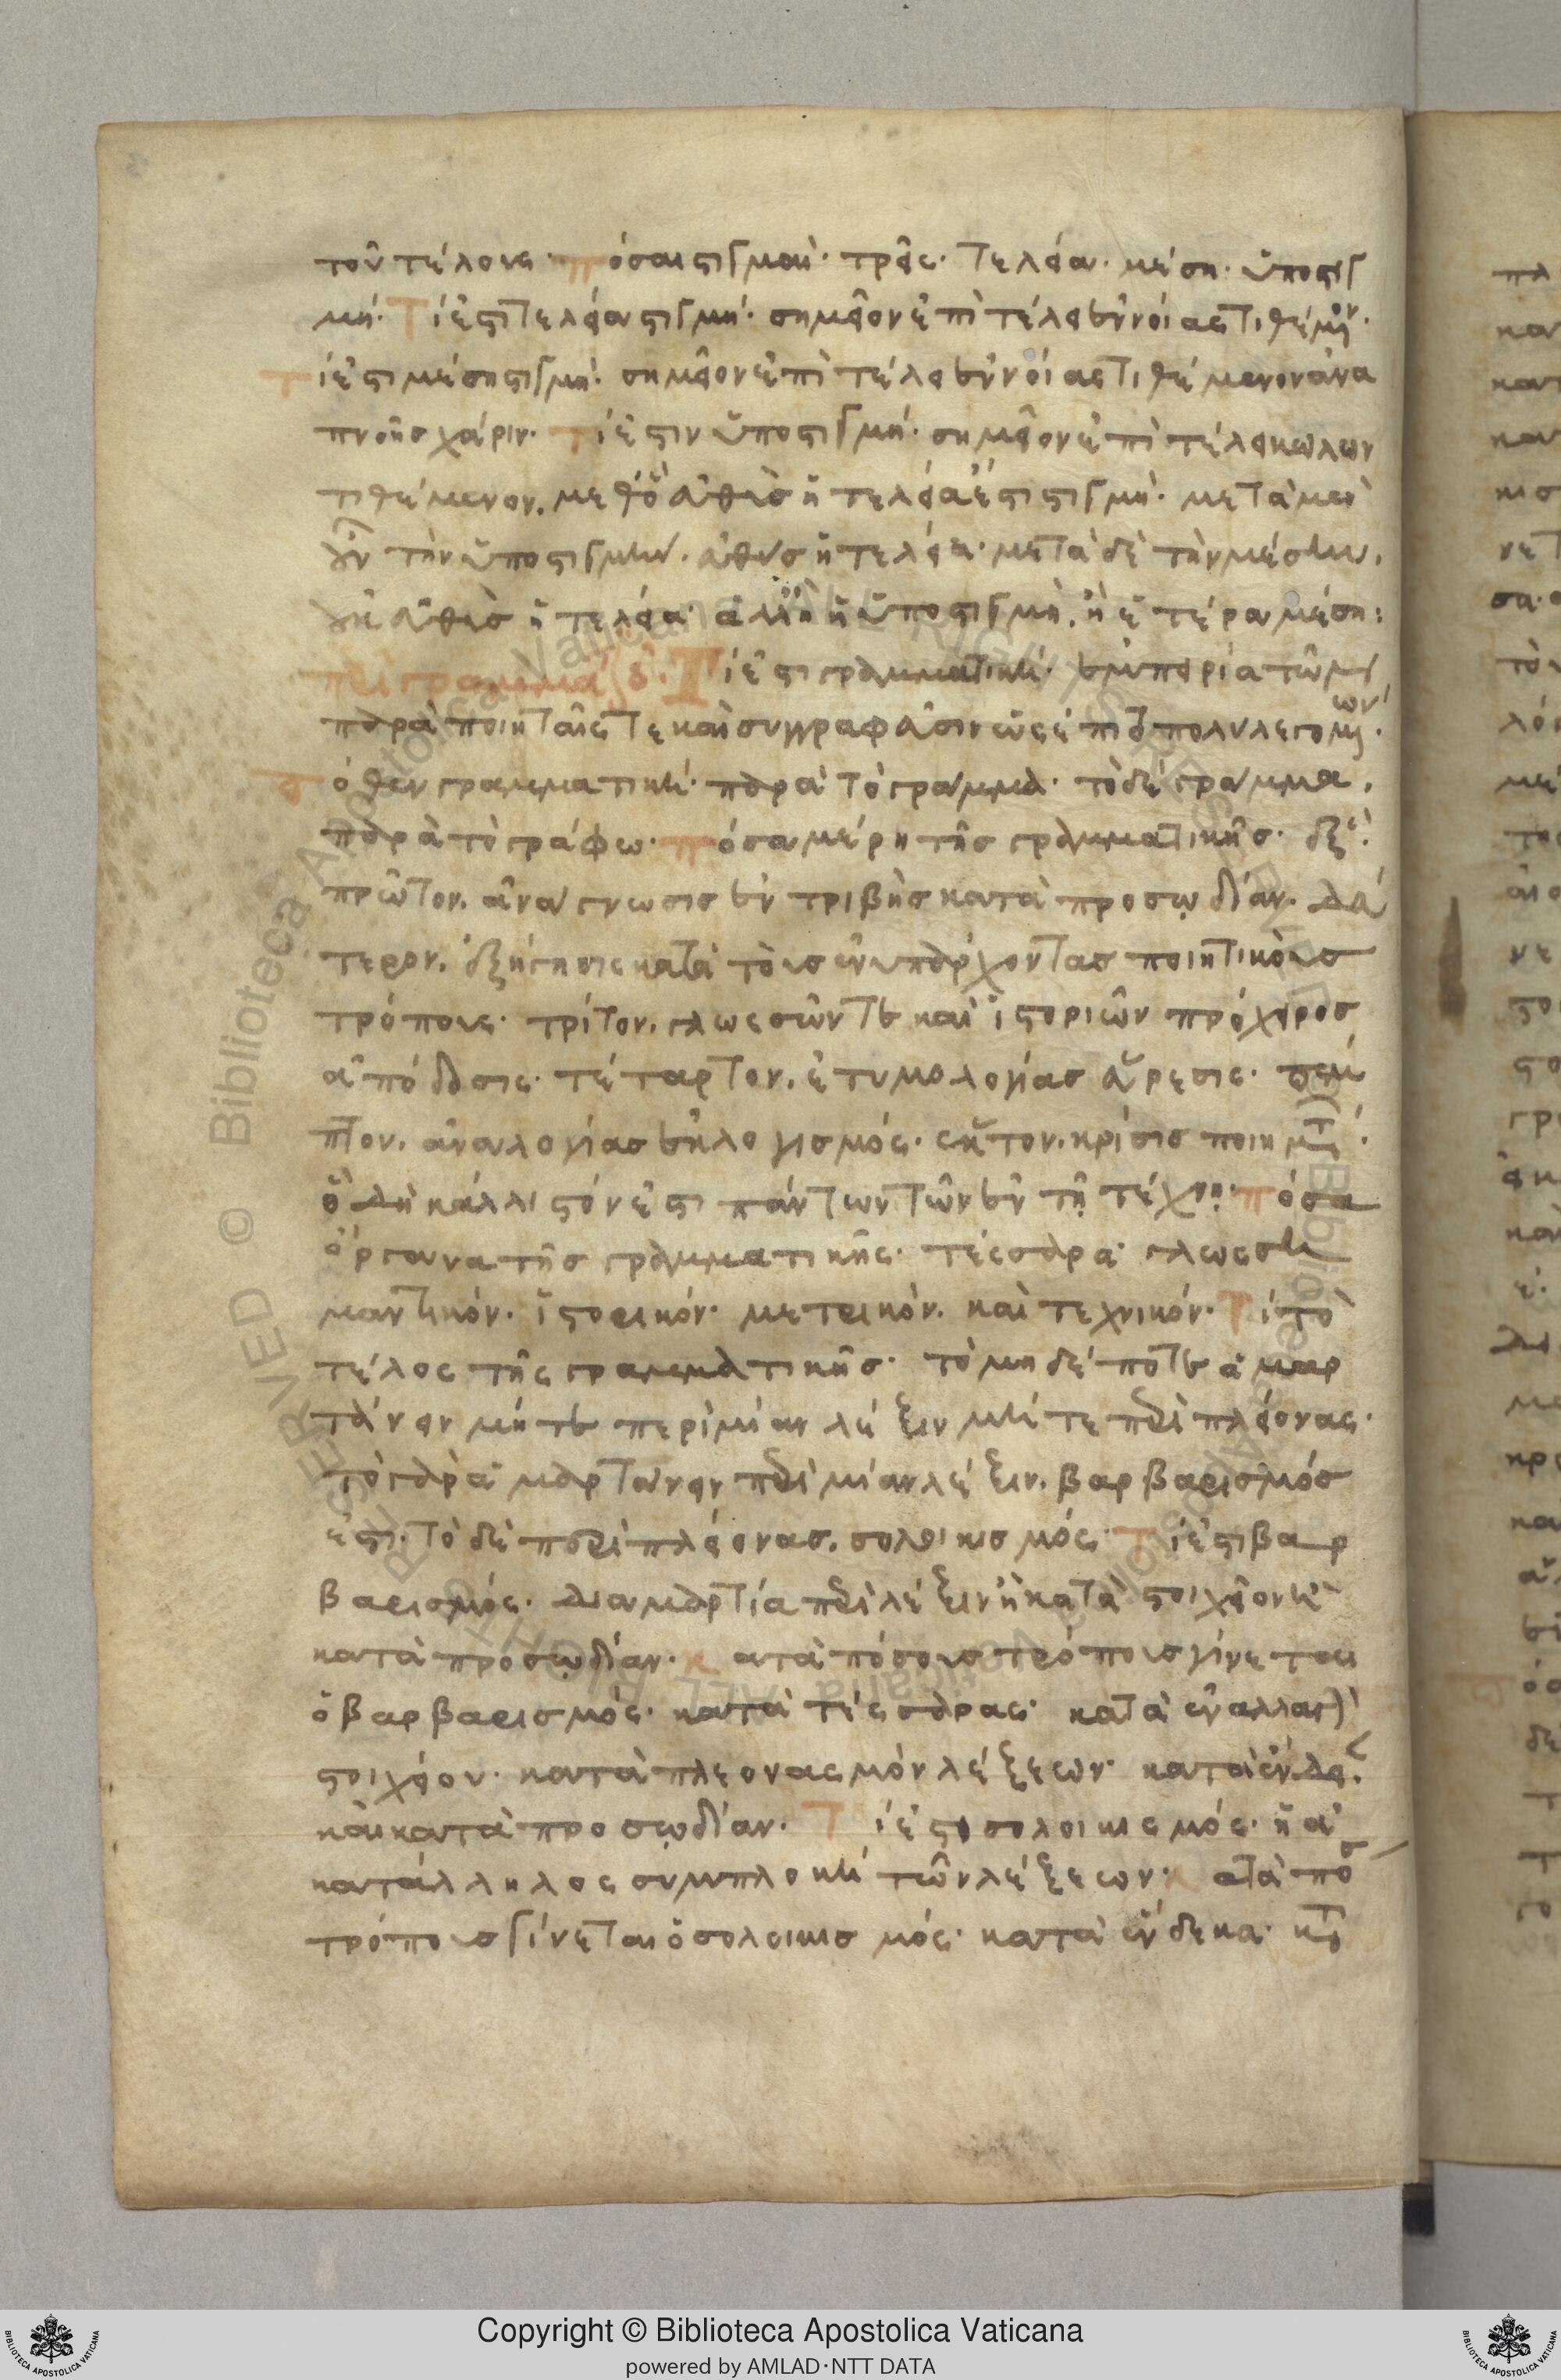 τοῦ τέλους· πόσαι στιγμαί· τρεῖς· τελεία· μέση· ὑποστιγ
μή· Τί ἐστι τελεία στιγμή· σημεῖον ἐπὶ τέλει ἐννοίας τιθέμενον·
τί ἐστι μέση στιγμή· σημεῖον ἐπὶ τέλει ἐννοίας τιθέμενον ἀνα
πνοῆς χάριν· τί ἐστιν ὑποστιγμή· σημεῖον ἐπὶ τέλει κώλων
τιθέμενον. μεθ' ὃ αὖθις ἡ τελεία ἐστι στιγμή· μετὰ μὲν
γὰρ τὴν ὑποστιγμὴν. αὖθις ἡ τελεία· μετὰ δὲ τὴν μέσην.
αὖθις ἡ τελεία· ἀλλ' ἢ ἡ ὑποστιγμὴ. ἢ ἑτέρα μέση:
περὶ γραμματικῆς Τί ἐστι γραμματική· ἐμπειρία τῶν
παρὰ ποιηταῖς τε καὶ συγγραφεῦσιν ὡς ἐπὶ τὸ πολὺ λεγομένων·
ὅθεν γραμματική· παρὰ τὸ γράμμα· τὸ δὲ γράμμα,
παρὰ τὸ γράφω· πόσα μέρη τῆς γραμματικῆς· ἕξ·
πρῶτον. ἀνάγνωσις ἐντριβὴς κατὰ προσῳδίαν· δεύ
τερον. ἐξήγησις κατὰ τοὺς ἐνυπάρχοντας ποιητικοὺς
τρόπους· τρίτον. γλωσσῶν τε καὶ ἱστοριῶν πρόχειρος
ἀπόδοσις· τέταρτον. ἐτυμολογίας εὕρεσις· πέμ
πτον. ἀναλογίας ἐκλογισμός· ἕκτον. κρίσις ποιημάτων·
ὃ δὴ κάλλιστόν ἐστι πάντων τῶν ἐν τῇ τέχνῃ· πόσα
ὄργανα τῆς γραμματικῆς· τέσσαρα· γλωσση
ματικόν. ἱστορικόν· μετρικόν. καὶ τεχνικόν· Τί τὸ
τέλος τῆς γραμματικῆς· τὸ μηδέποτε ἁμαρ
τάνειν μήτε περὶ μίαν λέξιν μήτε περὶ πλείονας·
τὸ γὰρ ἁμαρτάνειν περὶ μίαν λέξιν. βαρβαρισμός
ἐστι. τὸ δὲ περὶ πλείονας. σολοικισμός· Τί ἐστι βαρ
βαρισμός· διαμαρτία περὶ λέξιν ἢ κατὰ στοιχεῖον ἢ
κατὰ προσῳδίαν· κατὰ πόσους τρόπους γίνεται
ὁ βαρβαρισμός· κατὰ τέσσαρας· κατὰ ἐναλλαγὴν
στοιχείου· κατὰ πλεονασμὸν λέξεων· κατὰ ἔνδειαν.
καὶ κατὰ προσῳδίαν· Τί ἐστι σολοικισμός· ἡ ἀ
κατάλληλος συμπλοκὴ τῶν λέξεων· κατὰ πόσους
τρόπους γίνεται ὁ σολοικισμός· κατὰ ἕνδεκα· κατὰ
Copyright © Biblioteca Apostolica Vaticana
powered by AMLAD·NTT DATA